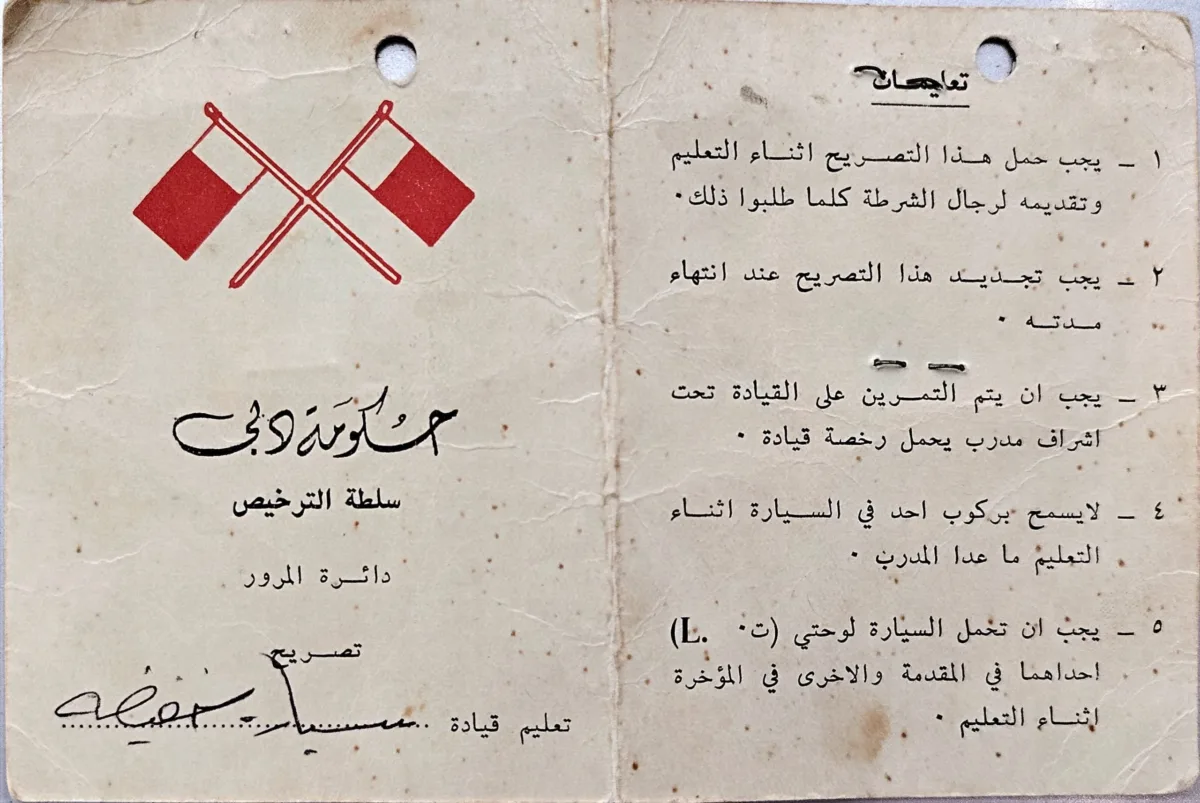 حكومَة دبي
سلطة الترخيص
دائـرة المرور
تصـريح
تعليم قيادة سيارة خفيفة
تعليمـات
١ ـ يجب حمل هـذا التصـريح اثنـاء التعليم
وتقديمه لرجال الشرطة كلما طلبوا ذلك٠
٢ ـ يجب تجـديـد هذا التصريح عند انتهاء
مـدتـه ٠
٣ ـ يجب ان يتم التمـرين على القيادة تحت
اشراف مدرب يحمل رخصة قيادة ٠
٤ ـ لايسمح بركوب احد في السيـارة اثنـاء
التعليم ما عدا المدرب ٠
٥ ـ يجب ان تحمل السيارة لوحتي (ت٠ L.)
احداهما في المقدمة والاخرى في المؤخرة
اثنـاء التعليم ٠